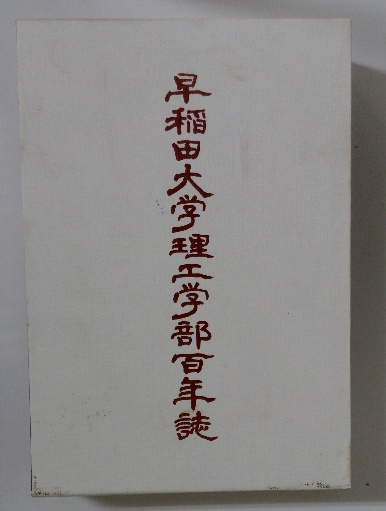 早稲田大学理工学部百年誌